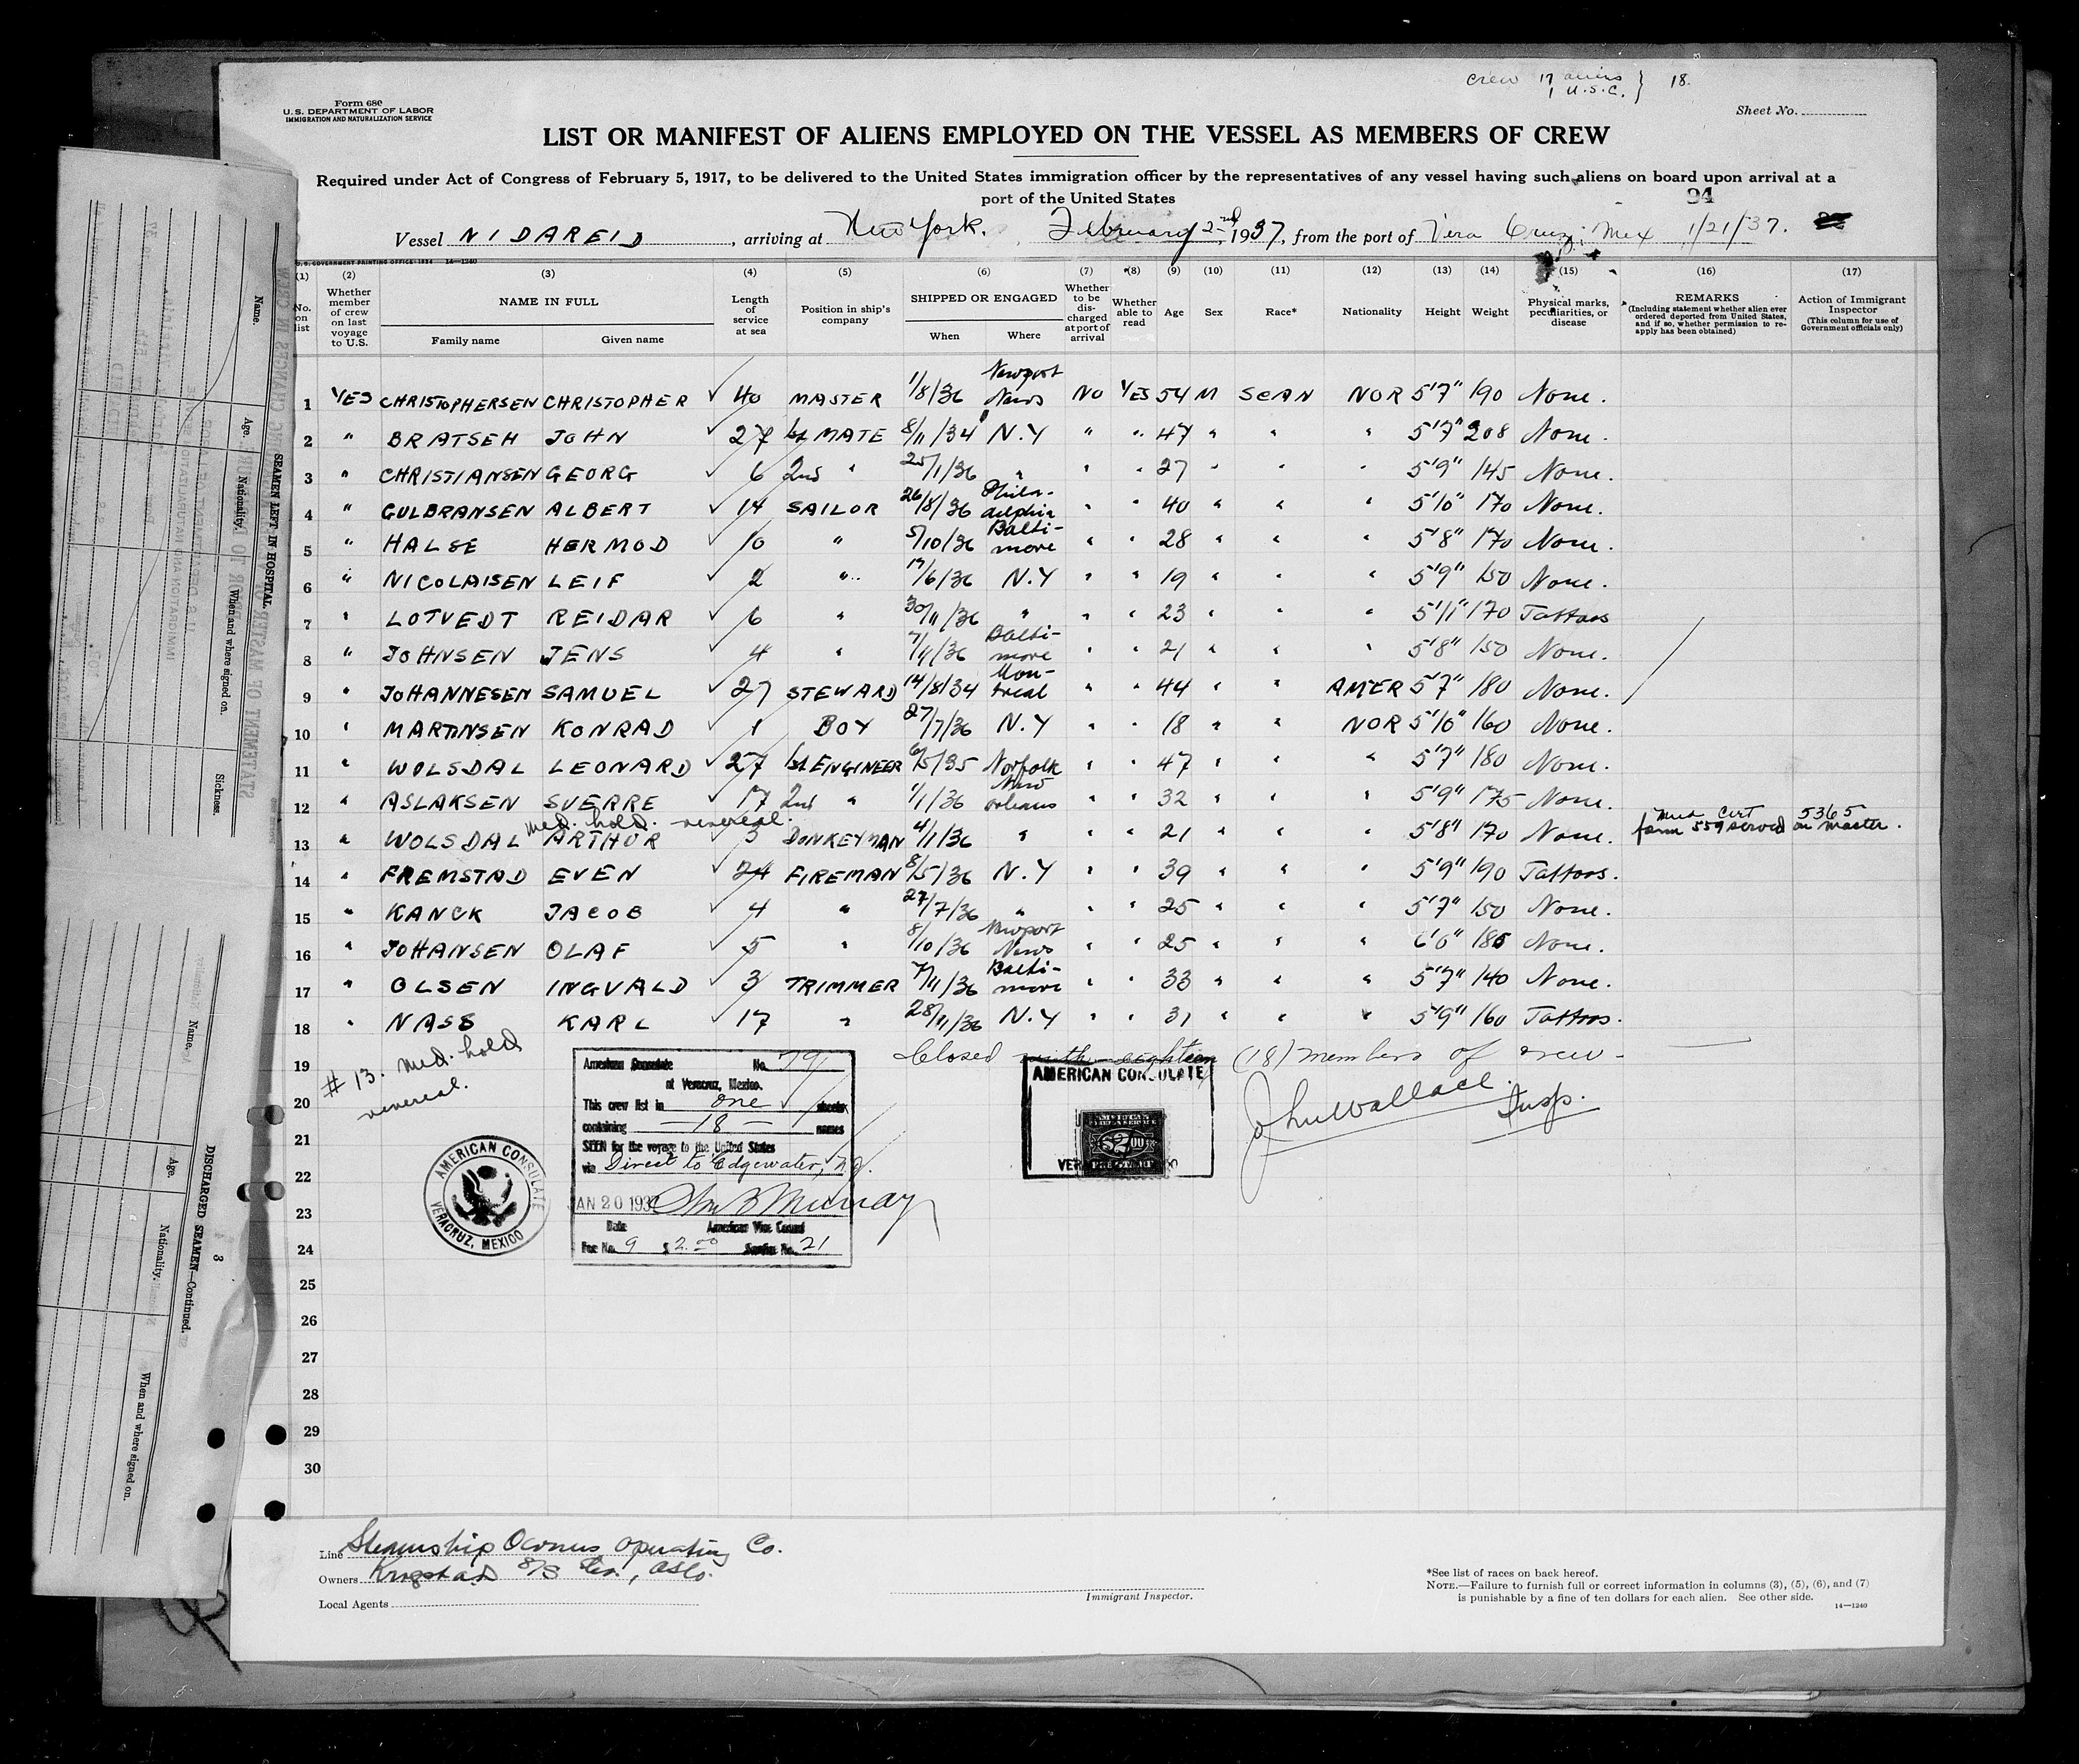 crew 17 aliens } 18.
1 U.S.C.
Form 680
U. S. DEPARTMENT OF LABOR
IMMIGRATION AND NATURALIZATION SERVICE
Sheet No.
LIST OR MANIFEST OF ALIENS EMPLOYED ON THE VESSEL AS MEMBERS OF CREW
Required under Act of Congress of February 5, 1917, to be delivered to the United States immigration officer by the representatives of any vessel having such aliens on board upon arrival at a
port of the United States
94
Vessel NIDAREID, arriving at New York. February 2nd, 1937, from the port of Vera Cruz, Mex 1/21/37.
U. S. GOVERNMENT PRINTING OFFICE: 1934 14—1240
(1) (2) (3) (4) (5) (6) (7) *(8) (9) (10) (11) (12) (13) (14) (15) (16) (17)
No. on list
Whether member of crew on last voyage to U.S.
NAME IN FULL
Family name Given name
Length of service at sea
Position in ship's company
SHIPPED OR ENGAGED
When Where
Whether to be discharged at port of arrival
Whether able to read
Age
Sex
Race*
Nationality
Height
Weight
Physical marks, peculiarities, or disease
REMARKS
(Including statement whether alien ever ordered deported from United States, and if so, whether permission to reapply has been obtained)
Action of Immigrant Inspector
(This column for use of Government officials only)
1 YES CHRISTOPHERSEN CHRISTOPHER ✓ 40 MASTER 1/8/36 Newport News NO YES 54 M SCAN NOR 5'7" 190 None.
2 " BRATSEH JOHN ✓ 27 1st MATE 8/11/34 N.Y " " 47 " " " 5'7" 208 None.
3 " CHRISTIANSEN GEORG ✓ 6 2nd " 25/1/36 " " " 27 " " " 5'9" 145 None.
4 " GULBRANSEN ALBERT ✓ 14 SAILOR 26/8/36 Philadelphia " " 40 " " " 5'10" 170 None.
5 " HALSE HERMOD ✓ 10 " 5/10/36 Baltimore " " 28 " " " 5'8" 170 None.
6 " NICOLAISEN LEIF ✓ 2 " 17/6/36 N.Y " " 19 " " " 5'9" 150 None.
7 " LOTVEDT REIDAR ✓ 6 " 30/11/36 " " " 23 " " " 5'11" 170 Tattoos
8 " JOHNSEN JENS ✓ 4 " 7/11/36 Baltimore " " 21 " " " 5'8" 150 None.
9 " JOHANNESEN SAMUEL ✓ 27 STEWARD 14/8/34 Montreal " " 44 " " AMER 5'7" 180 None.
10 " MARTINSEN KONRAD ✓ 1 BOY 27/7/36 N.Y " " 18 " " NOR 5'10" 160 None.
11 " WOLSDAL LEONARD ✓ 27 1st ENGINEER 6/5/35 Norfolk " " 47 " " " 5'7" 180 None.
12 " ASLAKSEN SVERRE ✓ 17 2nd " 1/1/36 New Orleans " " 32 " " " 5'9" 175 None.
med. hold. venereal.
13 " WOLSDAL ARTHUR ✓ 3 DONKEYMAN 4/1/36 " " " 21 " " " 5'8" 170 None. Med Cert 5365 form 559 served on master.
14 " FREMSTAD EVEN ✓ 24 FIREMAN 8/5/36 N.Y " " 39 " " " 5'9" 190 Tattoos.
15 " KANCK JACOB ✓ 4 " 27/7/36 " " " 25 " " " 5'7" 150 None.
16 " JOHANSEN OLAF ✓ 5 " 8/10/36 Newport News " " 25 " " " 6'0" 185 None.
17 " OLSEN INGVALD ✓ 3 TRIMMER 7/11/36 Baltimore " " 33 " " " 5'7" 140 None.
18 " NASS KARL ✓ 17 " 28/11/36 N.Y " " 31 " " " 5'9" 160 Tattoos.
19
20
21
22
23
24
25
26
27
28
29
30
# 13. med. hold
venereal.
Closed with eighteen (18) members of crew -
John Wallace.
Insp.
American Consulate No. 79
at Veracruz, Mexico.
This crew list in one sheets
containing — 18 — names
SEEN for the voyage to the United States
via Direct to Edgewater, N.J.
JAN 20 1937 Wm B Murray
Date American Vice Consul
Fee No. 9 $ 2.00 Service No. 21
AMERICAN CONSULATE
VERACRUZ, MEXICO
AMERICAN CONSULATE
$2.00
Line Steamship Owners Operating Co.
Owners
Local Agents
Immigrant Inspector.
*See list of races on back hereof.
NOTE.—Failure to furnish full or correct information in columns (3), (5), (6), and (7)
is punishable by a fine of ten dollars for each alien. See other side.
14—1240
SEAMEN LEFT IN HOSPITAL
Name. Age. Nationality. When and where signed on. Sickness.
3
DISCHARGED SEAMEN—Continued.
Name. Age. Nationality. When and where signed on.